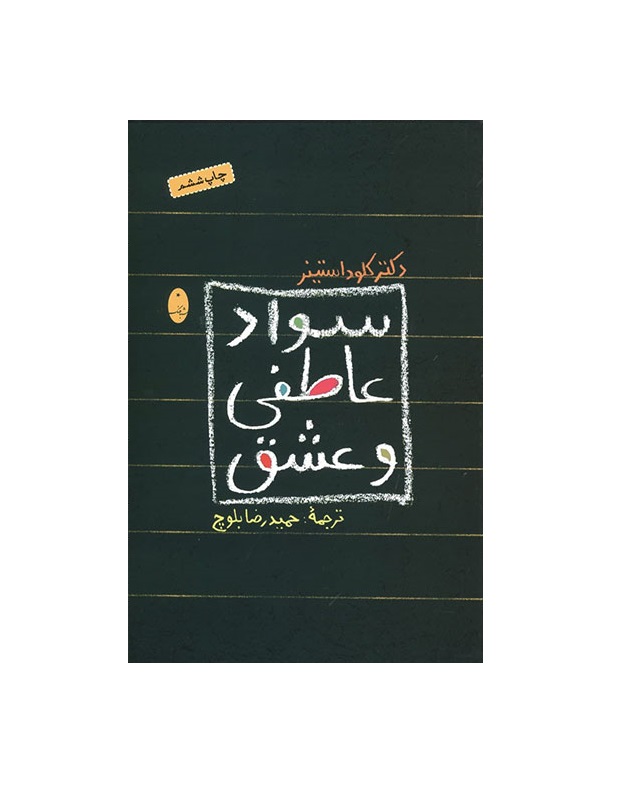 چاپ ششم
دکتر کلود استینر
سواد
عاطفی
و عشق
ترجمهٔ: حمیدرضا بلوچ